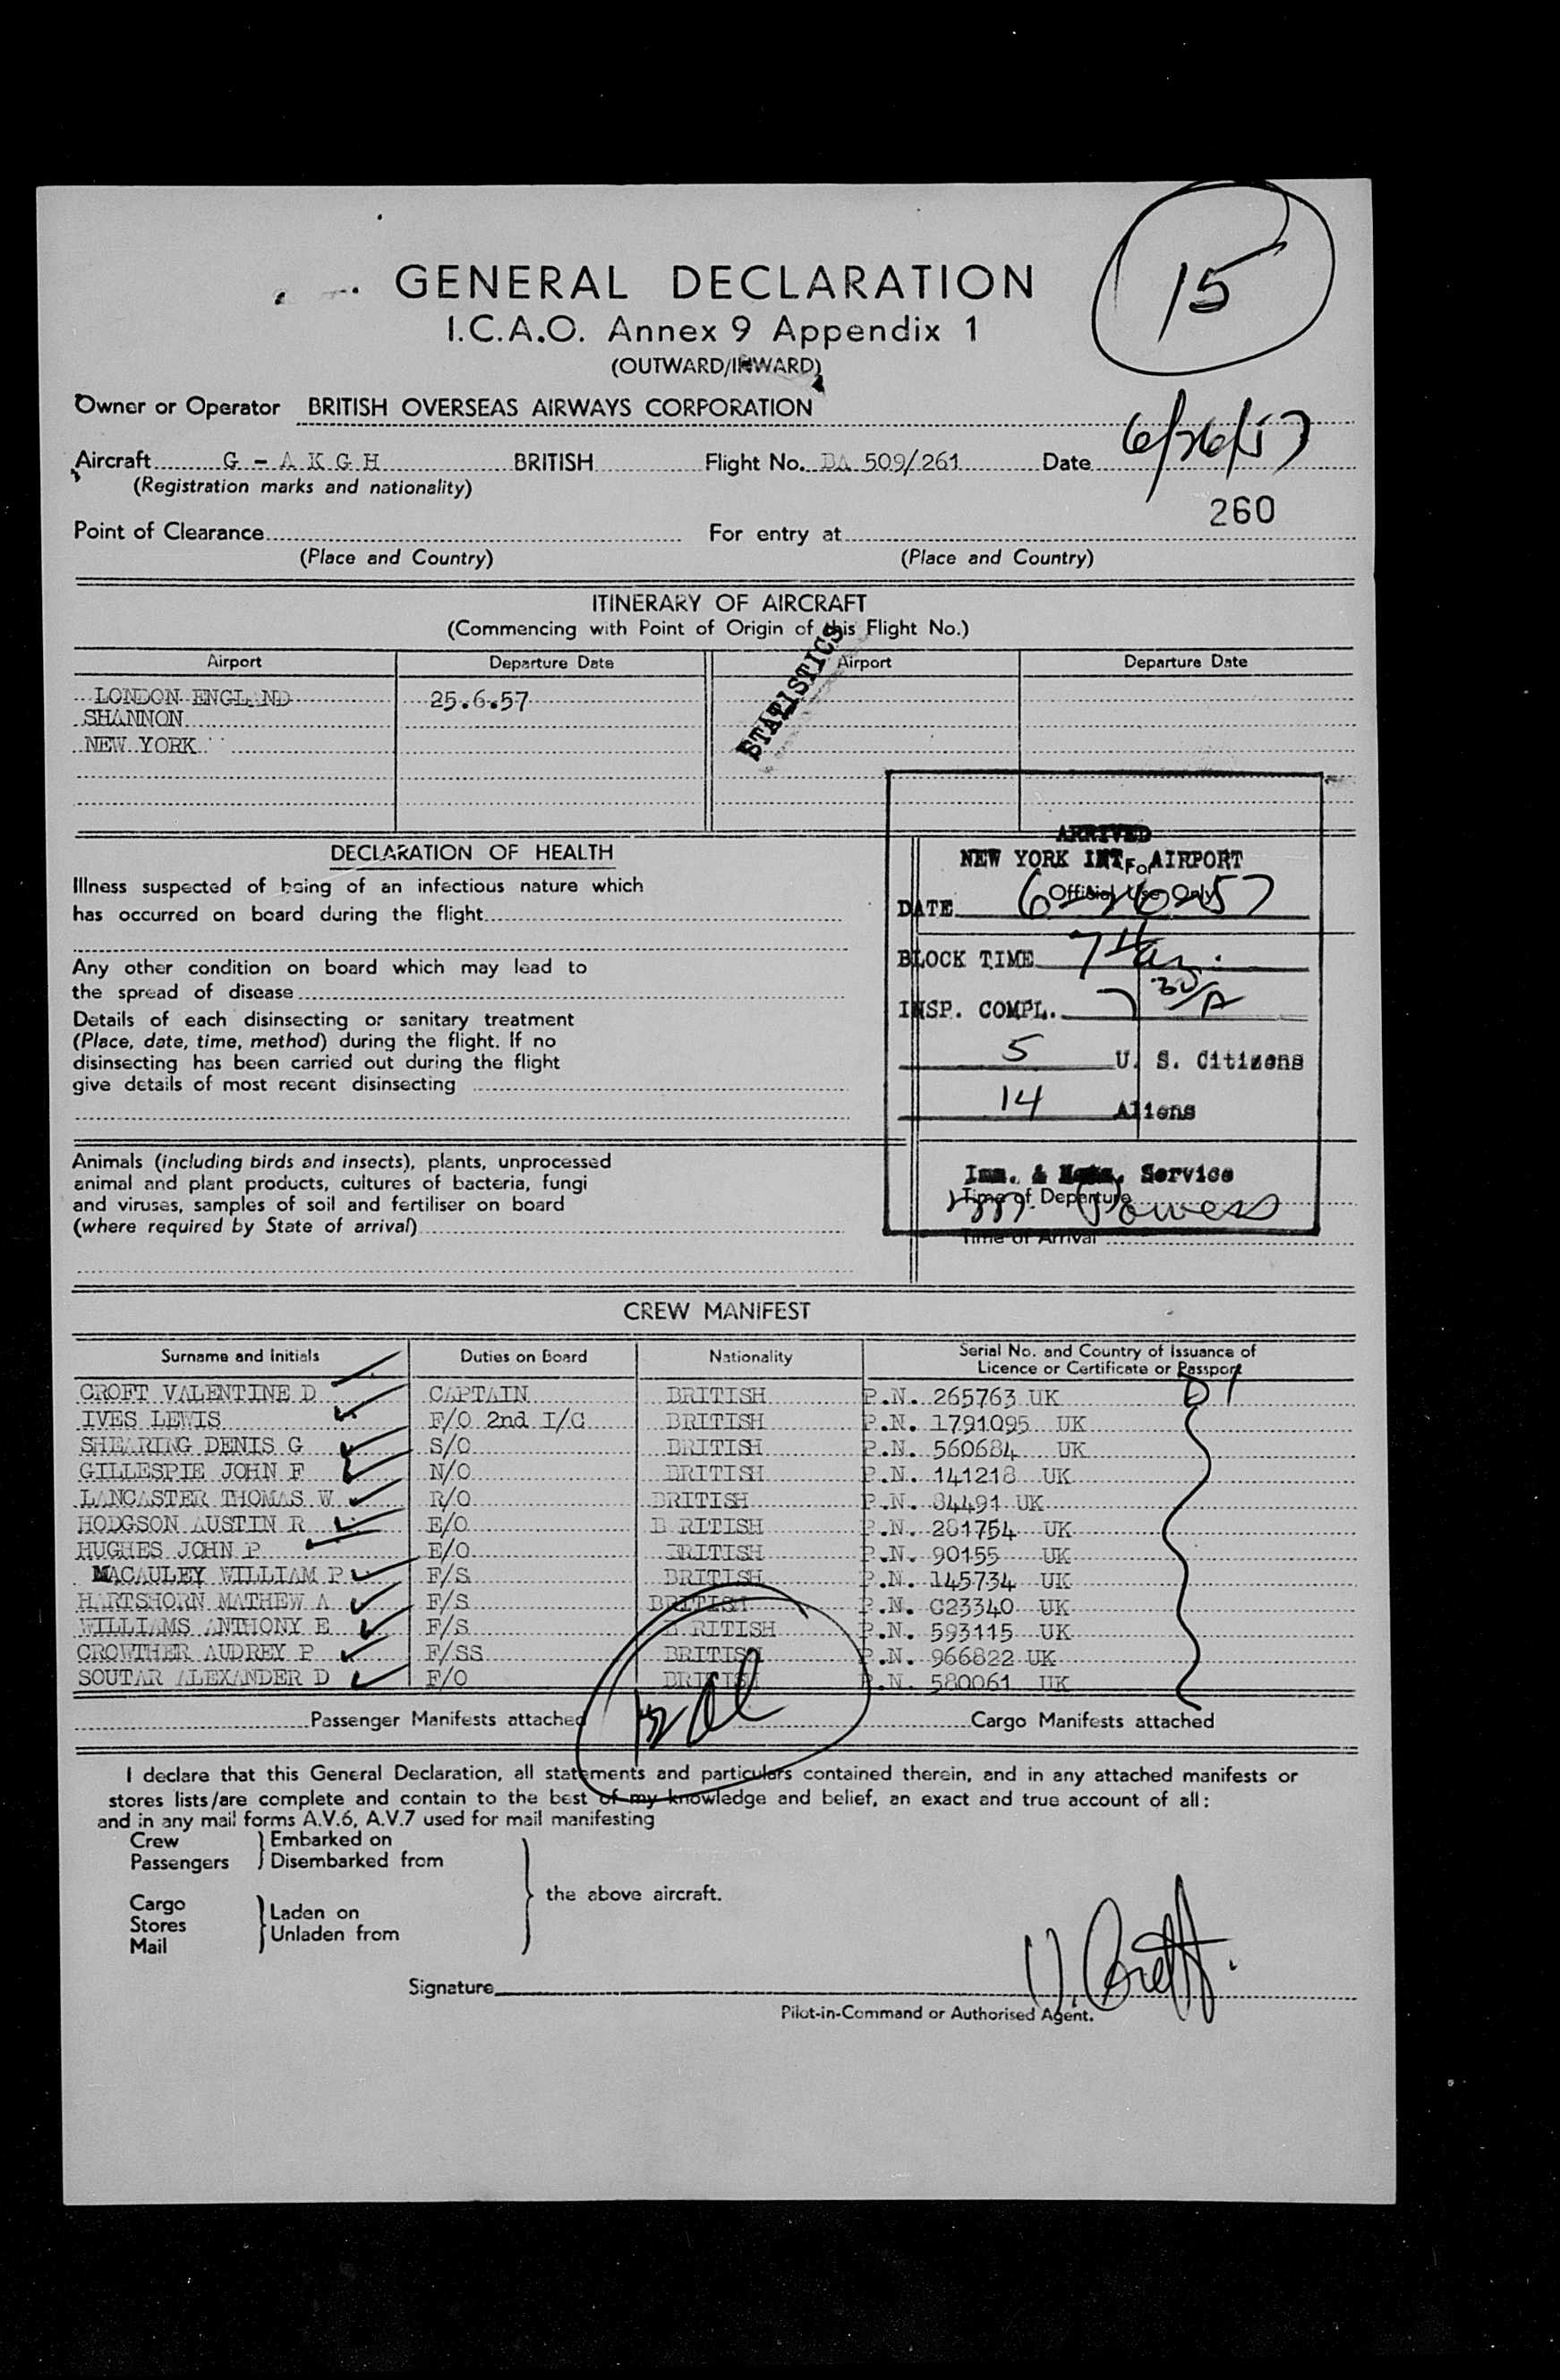 15
GENERAL DECLARATION
I.C.A.O. Annex 9 Appendix 1
(OUTWARD/INWARD)
Owner or Operator BRITISH OVERSEAS AIRWAYS CORPORATION
Aircraft G - A K G H BRITISH Flight No. BA 509/261 Date 6/26/57
(Registration marks and nationality)
260
Point of Clearance For entry at
(Place and Country) (Place and Country)
ITINERARY OF AIRCRAFT
(Commencing with Point of Origin of this Flight No.)
STATISTICS
Airport Departure Date Airport Departure Date
LONDON ENGLAND 25.6.57
SHANNON
NEW YORK
DECLARATION OF HEALTH
Illness suspected of being of an infectious nature which
has occurred on board during the flight
Any other condition on board which may lead to
the spread of disease
Details of each disinsecting or sanitary treatment
(Place, date, time, method) during the flight. If no
disinsecting has been carried out during the flight
give details of most recent disinsecting
Animals (including birds and insects), plants, unprocessed
animal and plant products, cultures of bacteria, fungi
and viruses, samples of soil and fertiliser on board
(where required by State of arrival)
For
Official Use Only
ARRIVED
NEW YORK INT. AIRPORT
DATE 6-26-57
BLOCK TIME 7
INSP. COMPL. 7 30/A
5 U. S. Citizens
14 Aliens
Imm. & Natz. Service
Time of Departure
Time of Arrival
CREW MANIFEST
Surname and Initials Duties on Board Nationality Serial No. and Country of Issuance of
Licence or Certificate or Passport
D 1
CROFT VALENTINE D CAPTAIN BRITISH P.N. 265763 UK
IVES LEWIS F/O 2nd I/C BRITISH P.N. 1791095 UK
SHEARING DENIS G S/O BRITISH P.N. 560684 UK
GILLESPIE JOHN F N/O BRITISH P.N. 141218 UK
LANCASTER THOMAS W R/O BRITISH P.N. 84491 UK
HODGSON AUSTIN R E/O B RITISH P.N. 281754 UK
HUGHES JOHN P E/O BRITISH P.N. 90155 UK
MACAULEY WILLIAM P F/S BRITISH P.N. 145734 UK
HARTSHORN MATHEW A F/S BRITISH P.N. C23340 UK
WILLIAMS ANTHONY E F/S B RITISH P.N. 593115 UK
CROWTHER AUDREY P F/SS BRITISH P.N. 966822 UK
SOUTAR ALEXANDER D F/O BRITISH P.N. 580061 UK
Passenger Manifests attached Cargo Manifests attached
I declare that this General Declaration, all statements and particulars contained therein, and in any attached manifests or
stores lists/are complete and contain to the best of my knowledge and belief, an exact and true account of all:
and in any mail forms A.V.6, A.V.7 used for mail manifesting
Crew Embarked on
Passengers Disembarked from
the above aircraft.
Cargo
Stores Laden on
Mail Unladen from
Signature V. Brett.
Pilot-in-Command or Authorised Agent.